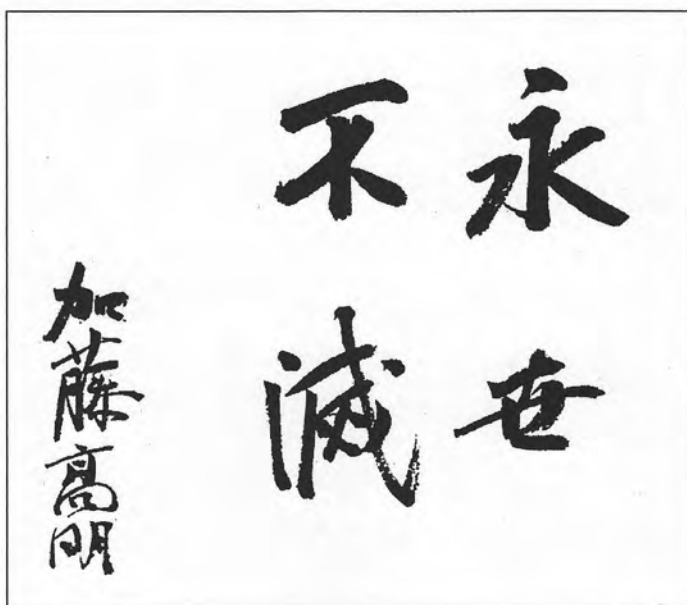 永世
不滅
加藤高明